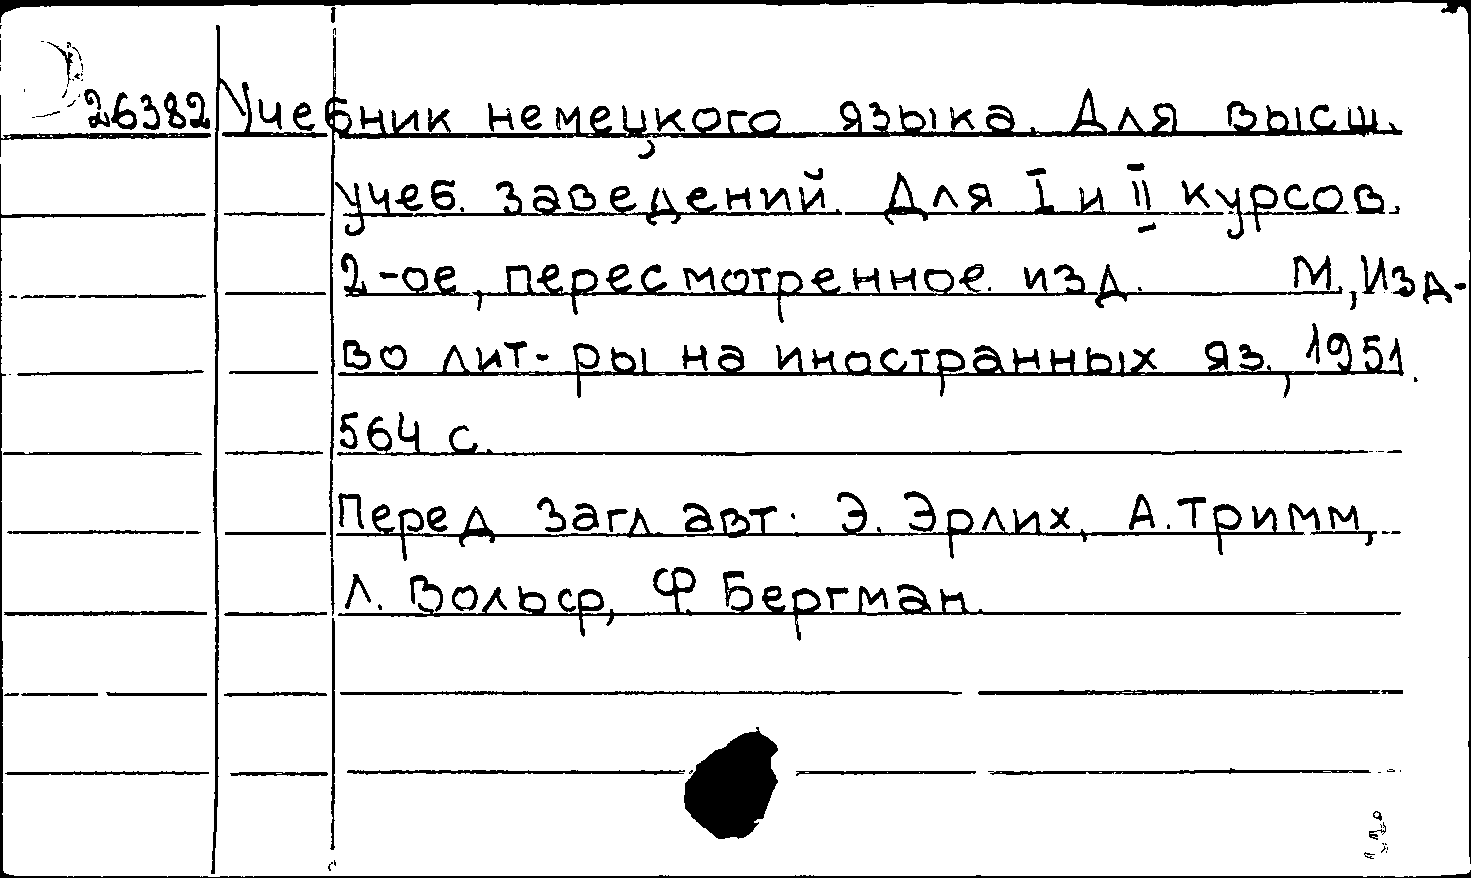 26382 Учебник немецкого языка. Для высш.
учеб. заведений. Для I и II курсов.
2-ое, пересмотренное изд. М., Изд-
во лит-ры на иностранных яз., 1951.
564 с.
Перед загл. авт. Э. Эрлих, А. Тримм,
Л. Вольф, Ф. Бергман.